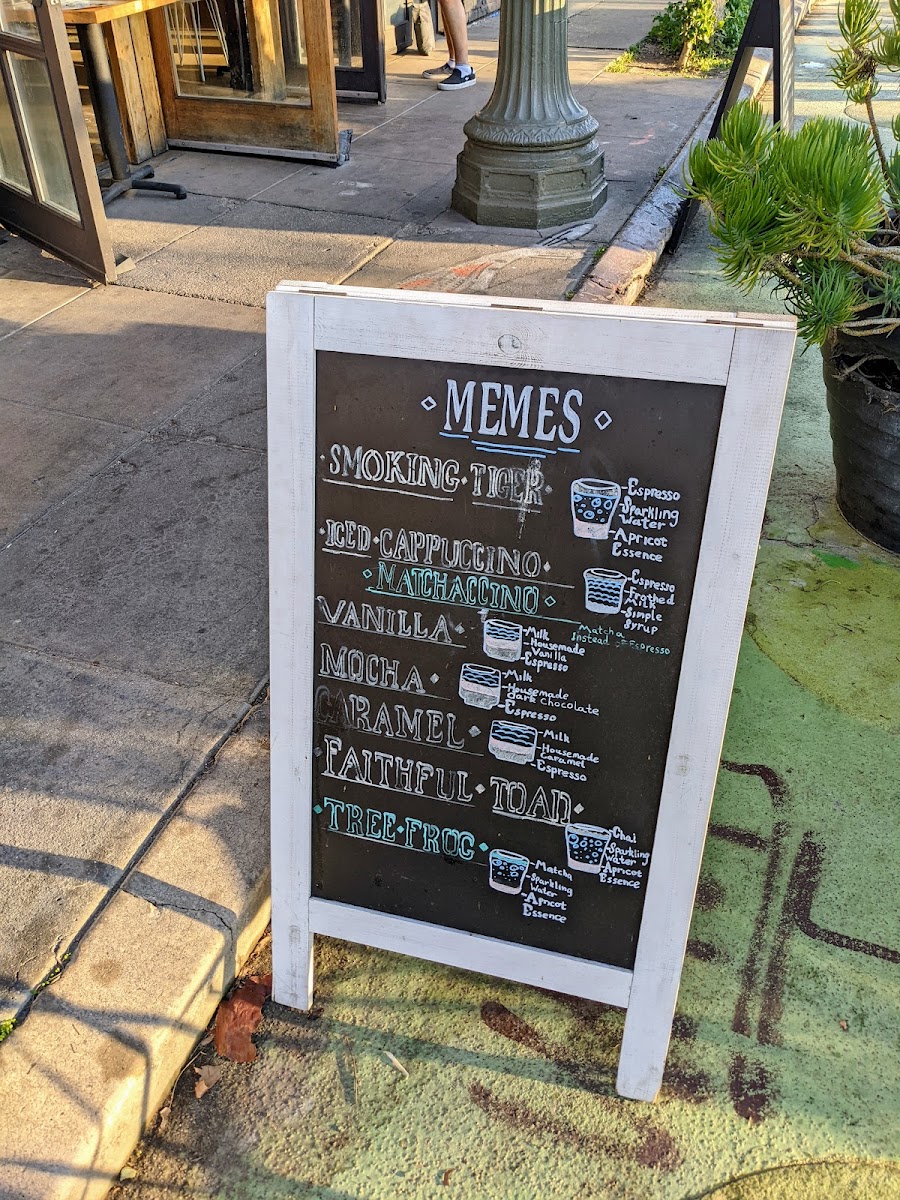 MEMES
SMOKING TIGER
Espresso
Sparkling
Water
Apricot
Essence
ICED CAPPUCCINO
MATCHACCINO
Espresso
Frothed
Milk
Simple
Syrup
Matcha
Instead of Espresso
VANILLA
Milk
Housemade
Vanilla
Espresso
MOCHA
Milk
Housemade
dark chocolate
Espresso
CARAMEL
Milk
Housemade
Caramel
Espresso
FAITHFUL TOAD
Chai
Sparkling
Water
Apricot
Essence
TREE FROG
Matcha
Sparkling
Water
Apricot
Essence